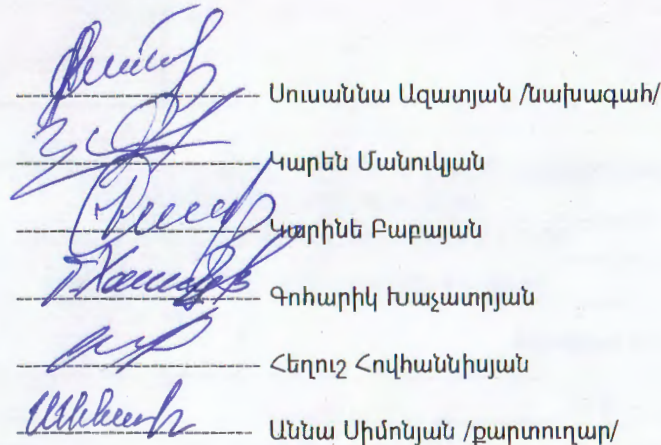 Սուսաննա Ազատյան /նախագահ/
Կարեն Մանուկյան
Կարինե Բաբայան
Գոհարիկ Խաչատրյան
Հեղուշ Հովհաննիսյան
Աննա Սիմոնյան /քարտուղար/